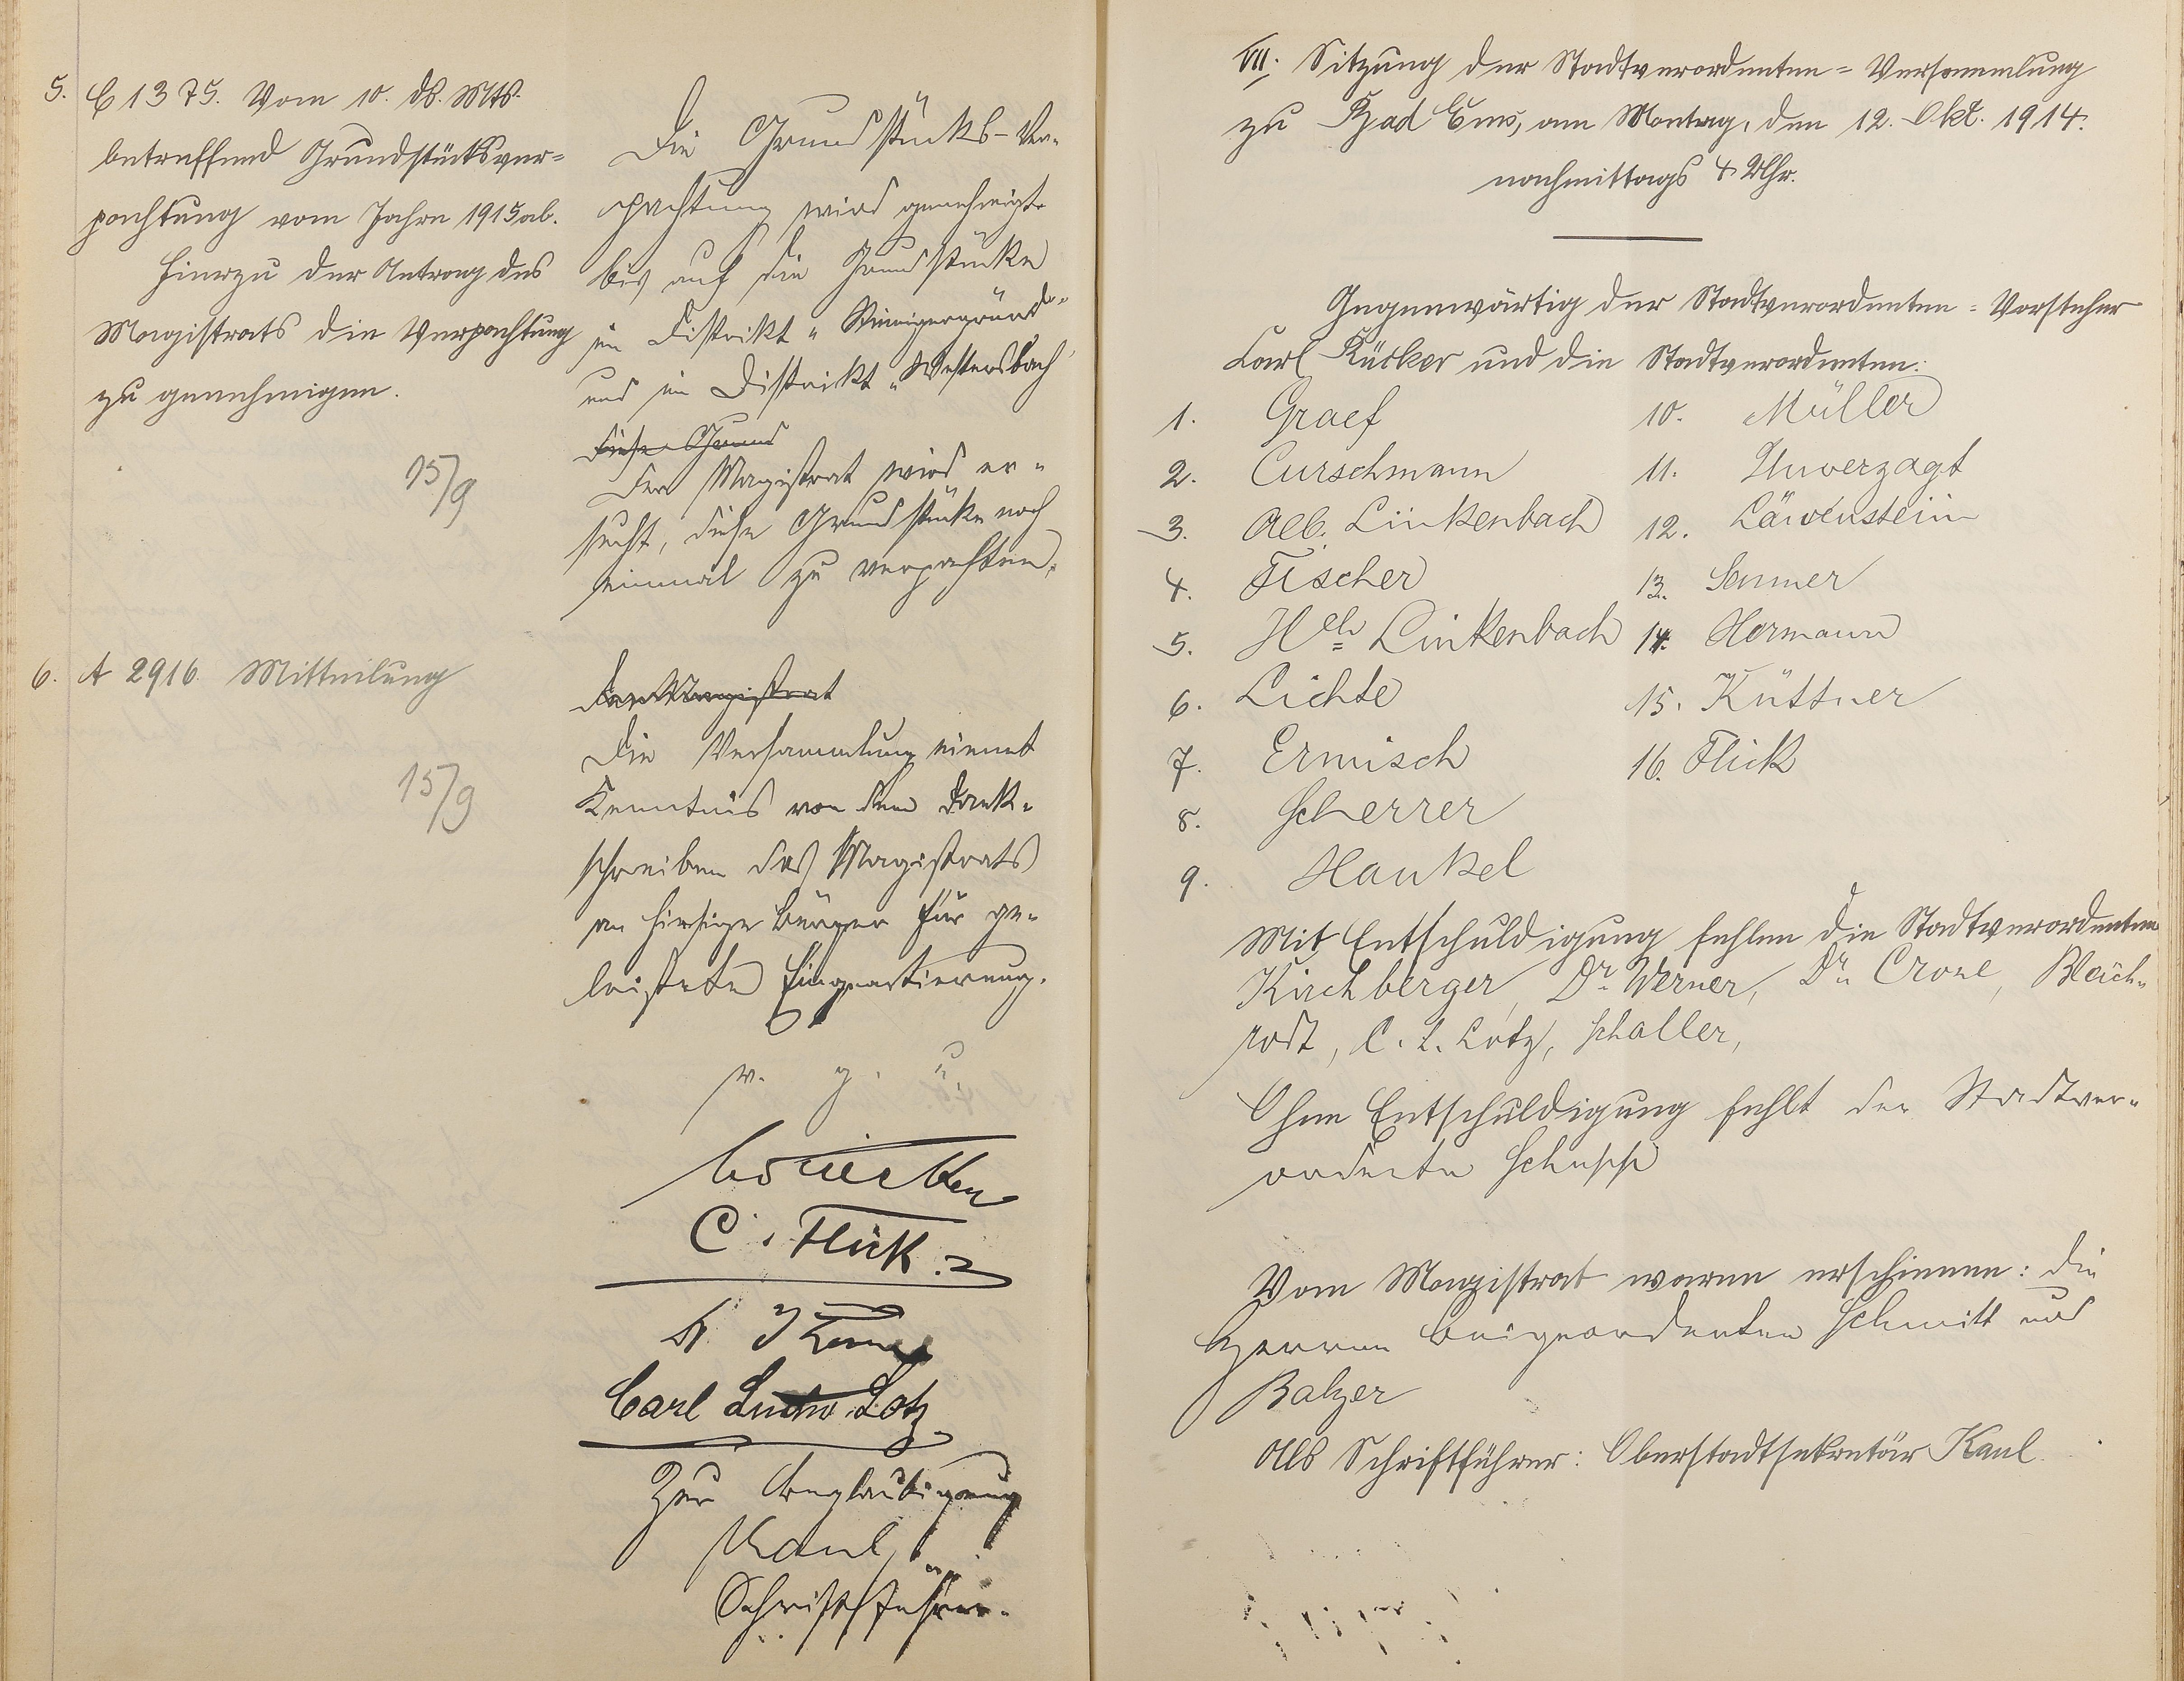 5. C 1375. Vom 10. ds. Mts.
betreffend Grundstücksver=
pachtung vom Jahre 1915 ab.
Hierzu der Antrag des
Magistrats die Verpachtung
zu genehmigen.
15/9
Die Grundstücks-Ver-
pachtung wird genehmigt
bis auf die Grundstücke
im Distrikt "
und im Distrikt „Westersbach"
Diese Grund
Der Magistrat wird er-
sucht, diese Grundstücke noch
einmal zu verpachten.
6. A 2916. Mitteilung
15/9
Der Magistrat
Die Versammlung nimmt
Kenntnis von dem Dank-
schreiben des Magistrats
an hiesige Bürger für ge-
leistete Einquartierung.
v. g. u.
C. Flick
Carl Ludw. Lotz
Zur Beglaubigung
Kaul,
Schriftführer.
VII. Sitzung der Stadtverordneten=Versammlung
zu Bad Ems, am Montag, den 12. Okt. 1914.
nachmittags 4 Uhr.
Gegenwärtig der Stadtverordneten=Vorsteher
Carl Rücker und die Stadtverordneten:
1. Graef
2. Curschmann
3. Alb. Linkenbach
4. Fischer
5. Hch Linkenbach
6. Lichte
7. Ermisch
8. Scherrer
9. Hankel
10. Müller
11. Unverzagt
12. Löwenstein
13. Sommer
14. Hermann
15. Küttner
16. Flick
Mit Entschuldigung fehlen die Stadtverordneten
Kirchberger, Dr. Werner, Dr. Crone,
C. L. Lotz, Schaller,
Ohne Entschuldigung fehlt der Stadtver-
ordnete Schupp
Vom Magistrat waren erschienen: die
Herren Beigeordneten Schmitt und
Balzer
Als Schriftführer: Oberstadtsekretär Kaul